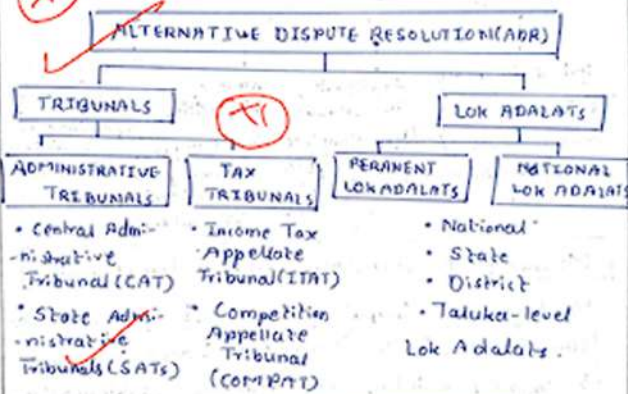 ALTERNATIVE DISPUTE RESOLUTION(ADR)
TRIBUNALS
+1
LOK ADALATS
ADMINISTRATIVE
TRIBUNALS
TAX
TRIBUNALS
PERANENT
LOKADALATS
NATIONAL
LOK ADALATS
• Central Admi-
-nistrative
Tribunal (CAT)
• State Admi-
-nistrative
Tribunals (SATs)
• Income Tax
Appellate
Tribunal (ITAT)
• Competition
Appellate
Tribunal
(COMPAT)
• National
• State
• District
• Taluka-level
Lok Adalats.